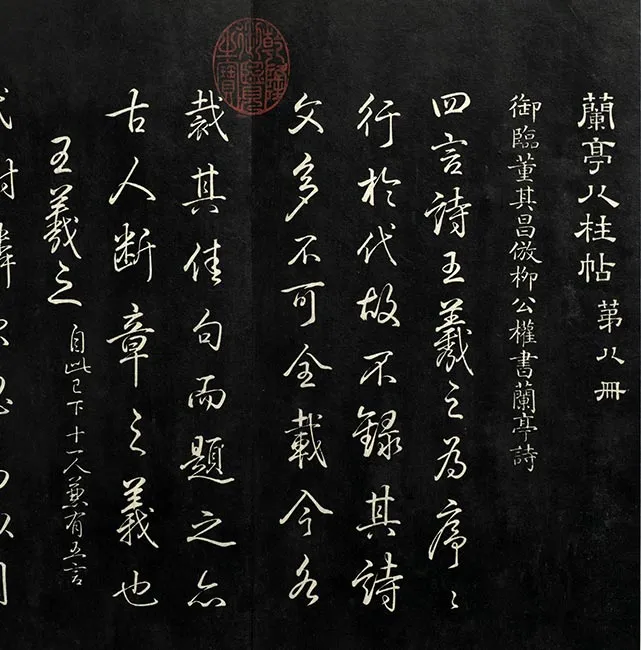 蘭亭八柱帖 第八冊
御臨董其昌倣柳公權書蘭亭詩
四言詩王羲之為序〻
行於代故不録其詩
文多不可全載今各
裁其佳句而題之亦
古人断章之義也
王羲之 自此已下十一人兼有五言
乾隆御覽之寶